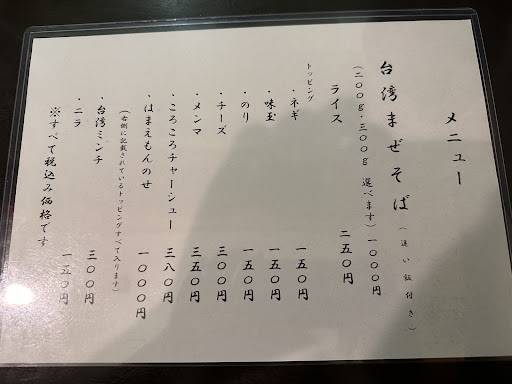 メニュー
台湾まぜそば(追い飯付き)
(二〇〇g・三〇〇g 選べます)一〇〇〇円
ライス 二五〇円
トッピング
・ネギ 一五〇円
・味玉 一五〇円
・のり 一五〇円
・チーズ 三〇〇円
・メンマ 三五〇円
・ころころチャーシュー 三八〇円
・はまえもんのせ 一〇〇〇円
(右側に記載されているトッピングすべて入ります)
・台湾ミンチ 三〇〇円
・ニラ 一五〇円
※すべて税込み価格です